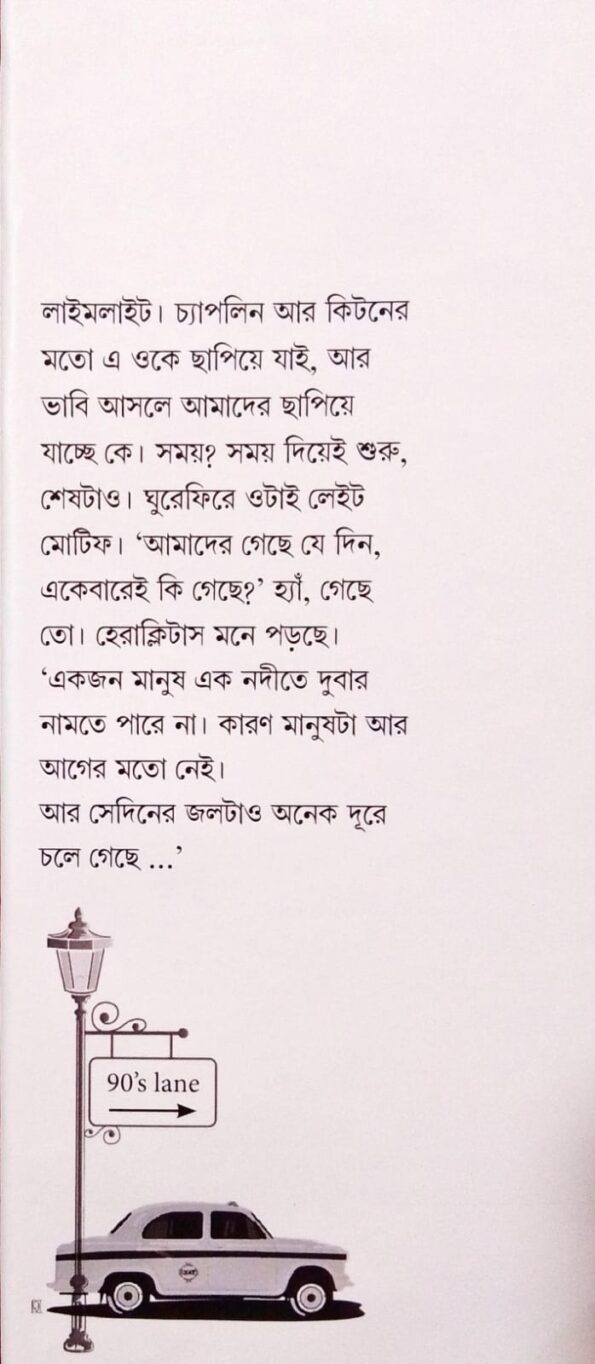 লাইমলাইট। চ্যাপলিন আর কিটনের
মতো এ ওকে ছাপিয়ে যাই, আর
ভাবি আসলে আমাদের ছাপিয়ে
যাচ্ছে কে। সময়? সময় দিয়েই শুরু,
শেষটাও। ঘুরেফিরে ওটাই লেইট
মোটিফ। ‘আমাদের গেছে যে দিন,
একেবারেই কি গেছে?’ হ্যাঁ, গেছে
তো। হেরাক্লিটাস মনে পড়ছে।
‘একজন মানুষ এক নদীতে দুবার
নামতে পারে না। কারণ মানুষটা আর
আগের মতো নেই।
আর সেদিনের জলটাও অনেক দূরে
চলে গেছে ...’
90’s lane